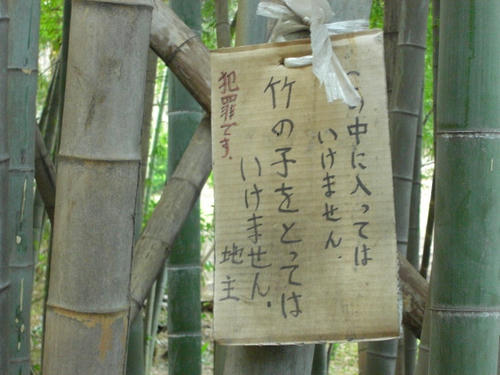 この中に入っては
いけません。
竹の子をとっては
いけません。
地主
犯罪です。